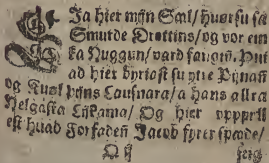 Ja hier mijn Sæl/ huorsu sa
Smurde Drottins/ og vor ein
ka Huggun/ vard fangin. Þui
ad hier byriast su ytre Pijnan
og Kuol þijns Lausnara/ a hans allra
Helgasta Lijkama/ Og hier uppfyll
est huad Forfaden Jacob fyrer spæde/